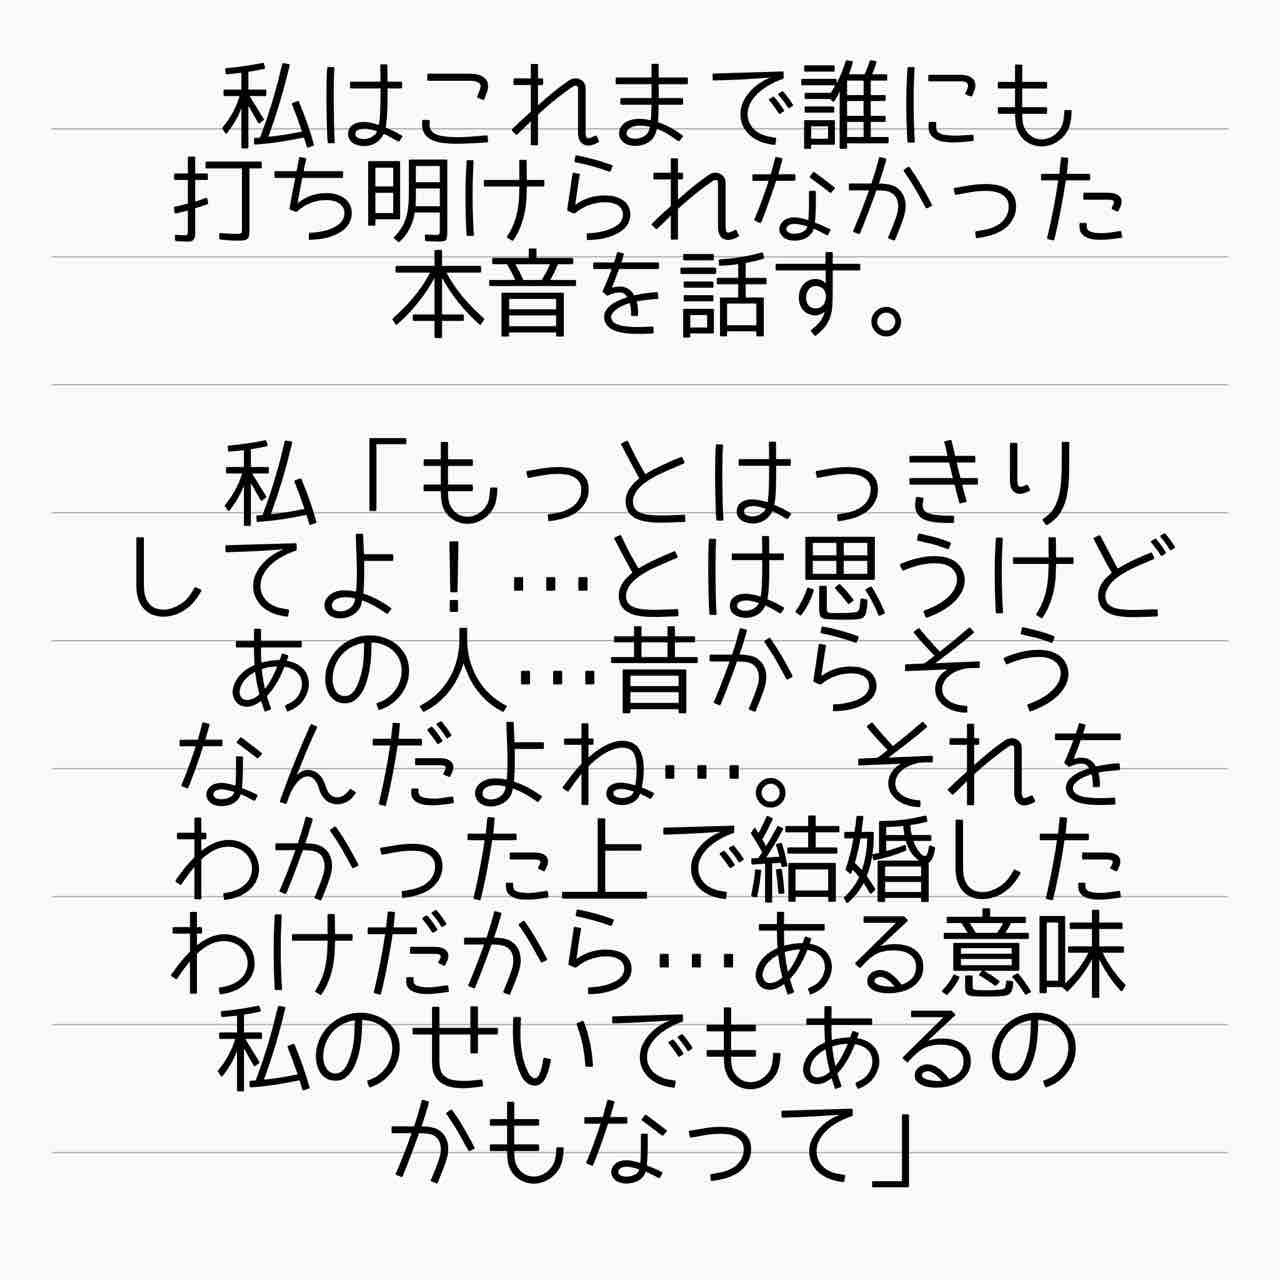 私はこれまで誰にも
打ち明けられなかった
本音を話す。
私「もっとはっきり
してよ！…とは思うけど
あの人…昔からそう
なんだよね…。それを
わかった上で結婚した
わけだから…ある意味
私のせいでもあるの
かもなって」